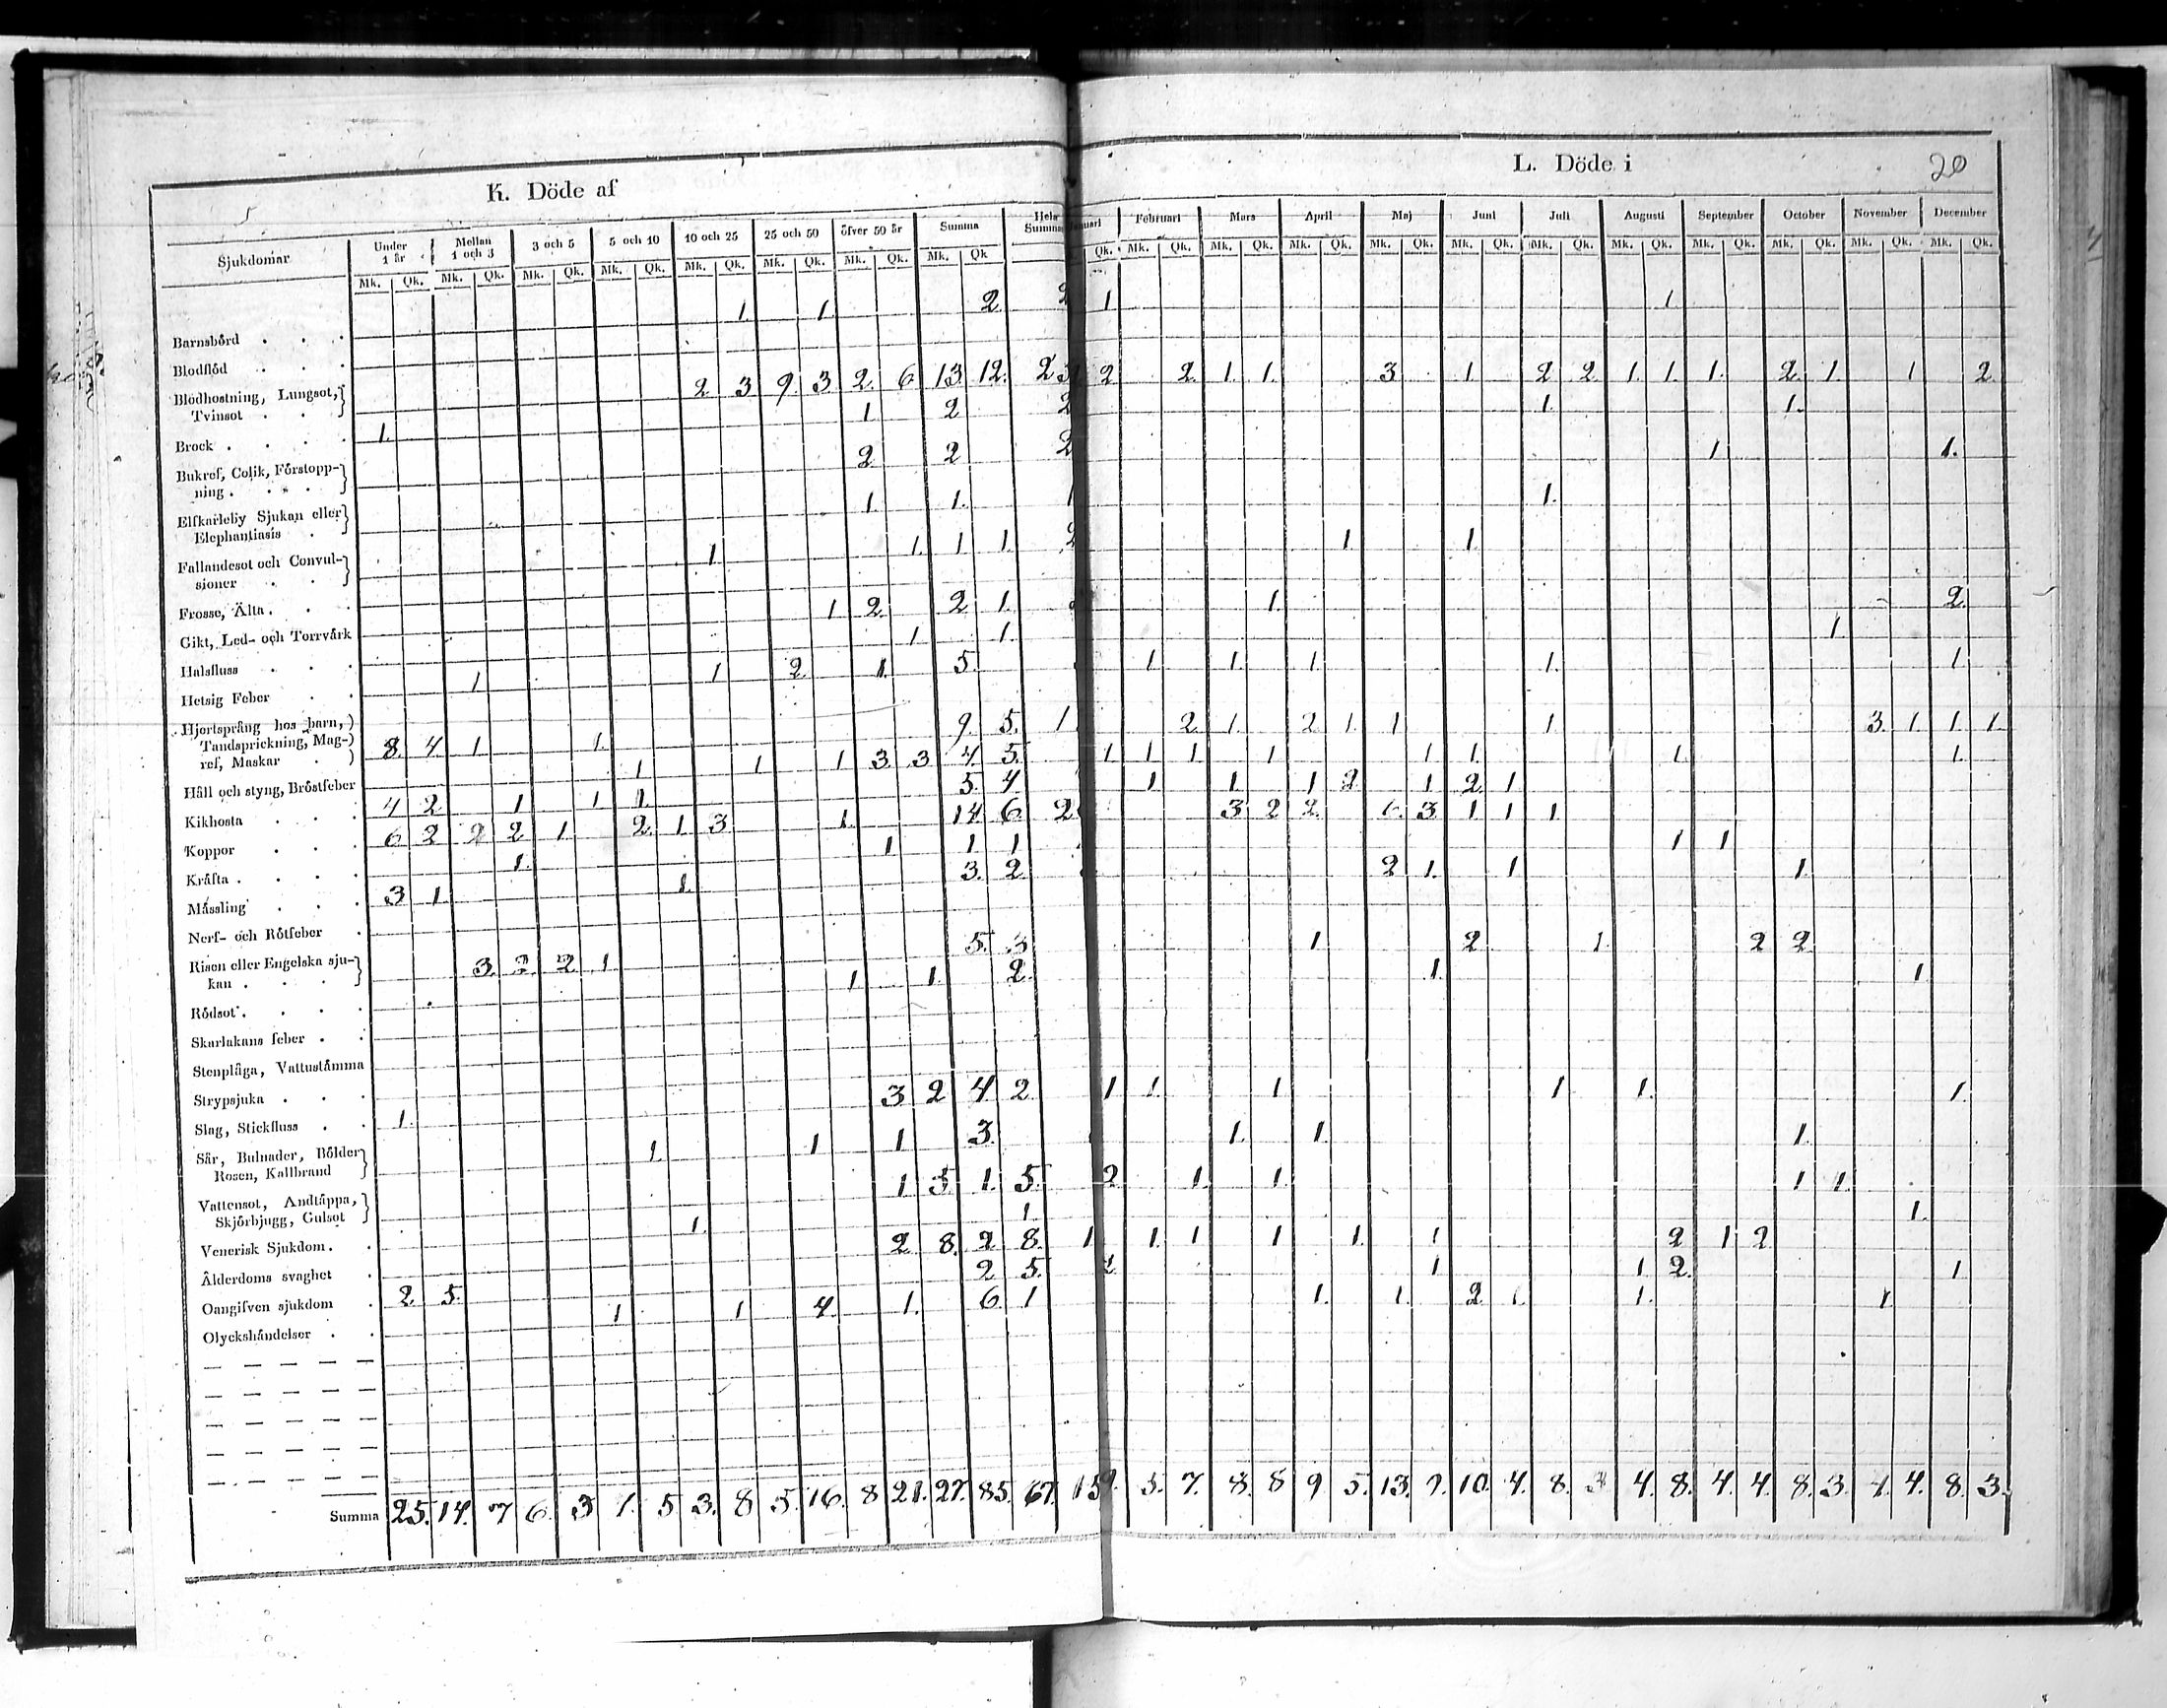 K. Döde af
L. Döde i
20
Sjukdomar
Under 1 år
Mellan 1 och 3
3 och 5
5 och 10
10 och 25
25 och 50
öfver 50 år
Summa
Hela Summa
Februari
Mars
April
Maj
Juni
Juli
Augusti
September
October
November
December
Mk. Qk. Mk. Qk. Mk. Qk. Mk. Qk. Mk. Qk. Mk. Qk. Mk. Qk. Mk. Qk
Qk. Mk. Qk. Mk. Qk. Mk. Qk. Mk. Qk. Mk. Qk. Mk. Qk. Mk. Qk. Mk. Qk. Mk. Qk. Mk. Qk. Mk. Qk.
1. 1. 2. 2 1. 1.
Barnsbörd
Blodflöd
2 3 9. 3 2. 6 13. 12. 2 2. 1. 1. 3 1. 2 2. 1. 1. 1. 2. 1. 1 2.
Blodhostning, Lungsot, Tvinsot
1. 2 2 1. 1.
Brock 1.
2 2 2 1. 1.
Bukref, Colik, Förstoppning
1. 1. 1 1.
Elfkarleby Sjukan eller Elephantiasis
1. 1. 1 1. 2 1 1.
Fallandesot och Convulsioner
Frosse, Älta
1 2 2 1. 1. 2.
Gikt, Led- och Torrvärk
1. 1. 1.
Halsfluss
1. 1 2. 1. 5. 1 1. 1. 1. 1.
Hetsig Feber
9. 5. 1 2. 1. 2. 1. 1 1. 3. 1. 1. 1.
Hjortsprång hos barn, Tandsprickning, Magref, Maskar
8. 4. 1. 1.
1. 1. 1. 3. 3 4 5. 1 1. 1. 1. 1. 1. 1. 1.
Håll och styng, Bröstfeber
5. 4. 1. 1. 1 2 1 2. 1
Kikhosta
4 2 1 1 1.
14 6. 2 3 2 2. 6. 3 1. 1 1.
Koppor
6 2 2 2 1 2. 1 3 1.
1 1 1. 1 1.
Kräfta
1. 3. 2. 2 1. 1 1.
Mässling
3 1. 1.
Nerf- och Rötfeber
5. 3 1 2. 1. 2 2.
Risen eller Engelska sjukan
3. 2. 2 1.
1. 1. 2. 1. 1.
Rödsot
Skarlakans feber
Stenplåga, Vattustämma
Strypsjuka
3 2 4 2 1 1. 1. 1. 1. 1.
Slag, Stickfluss 1.
1. 1. 1. 3. 1. 1. 1.
Sår, Bulnader, Bölder Rosen, Kallbrand
1. 5 1. 5. 2. 1. 1. 1. 1.
Vattensot, Andtäppa, Skjörbjugg, Gulsot
1. 1. 1.
Venerisk Sjukdom
2. 8. 2 8. 1 1. 1 1 1. 1 2 1 2
Ålderdoms svaghet
2 5. 2. 1 1. 2. 1
Oangifven sjukdom
2. 5.
1 1. 4. 1. 6. 1 1. 1. 2 1. 1. 1.
Olyckshändelser
Summa 25. 14. 7 6. 3 1. 5 3. 8 5. 16. 8 21. 27. 85. 67. 15 5. 7. 8. 8 9. 5. 13. 9. 10. 4. 8. 3. 4. 8. 4. 4. 8. 3. 4. 4. 8. 3.